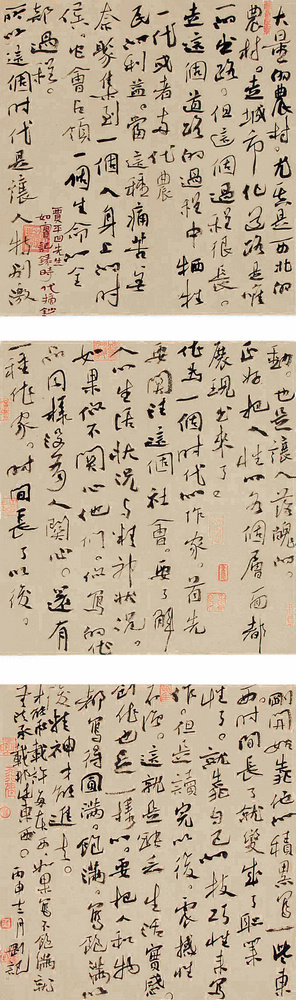 大量的农村。尤其是西北的
農村。走城市化道路是唯
一的出路。但這個過程很長。
走這個道路的過程中牺牲
一代或者两代農
民的利益。當這種痛苦無
奈聚集到一個人身上的时
候。它會占領一個生命的全
部過程。
所以這個时代是讓人特别激
動。也是讓人尴尬的。
正好把人性的各個層面都
展現出來了。
作为一個时代的作家。首先
要關注這個社會。要了解
人的生活狀況与精神狀況。
如果你不關心他们。你寫的作
品同樣没有人關心。還有
一種作家。时间長了以後。
剛開始靠他的積累寫一些東
西时间長了就變成了職業
性了。就靠自己的技巧性来寫
作。但是讀完以後。震撼性
不强。這就是缺乏生活實感。
創作也是一樣的。要把人和物
都寫得圓满。飽满。寫飽满以
後精神才能進去。
才能承載許多東西如果寫不飽满就
無法承載那些東西。丙申十二月
賈平凹先生
如實記録时代